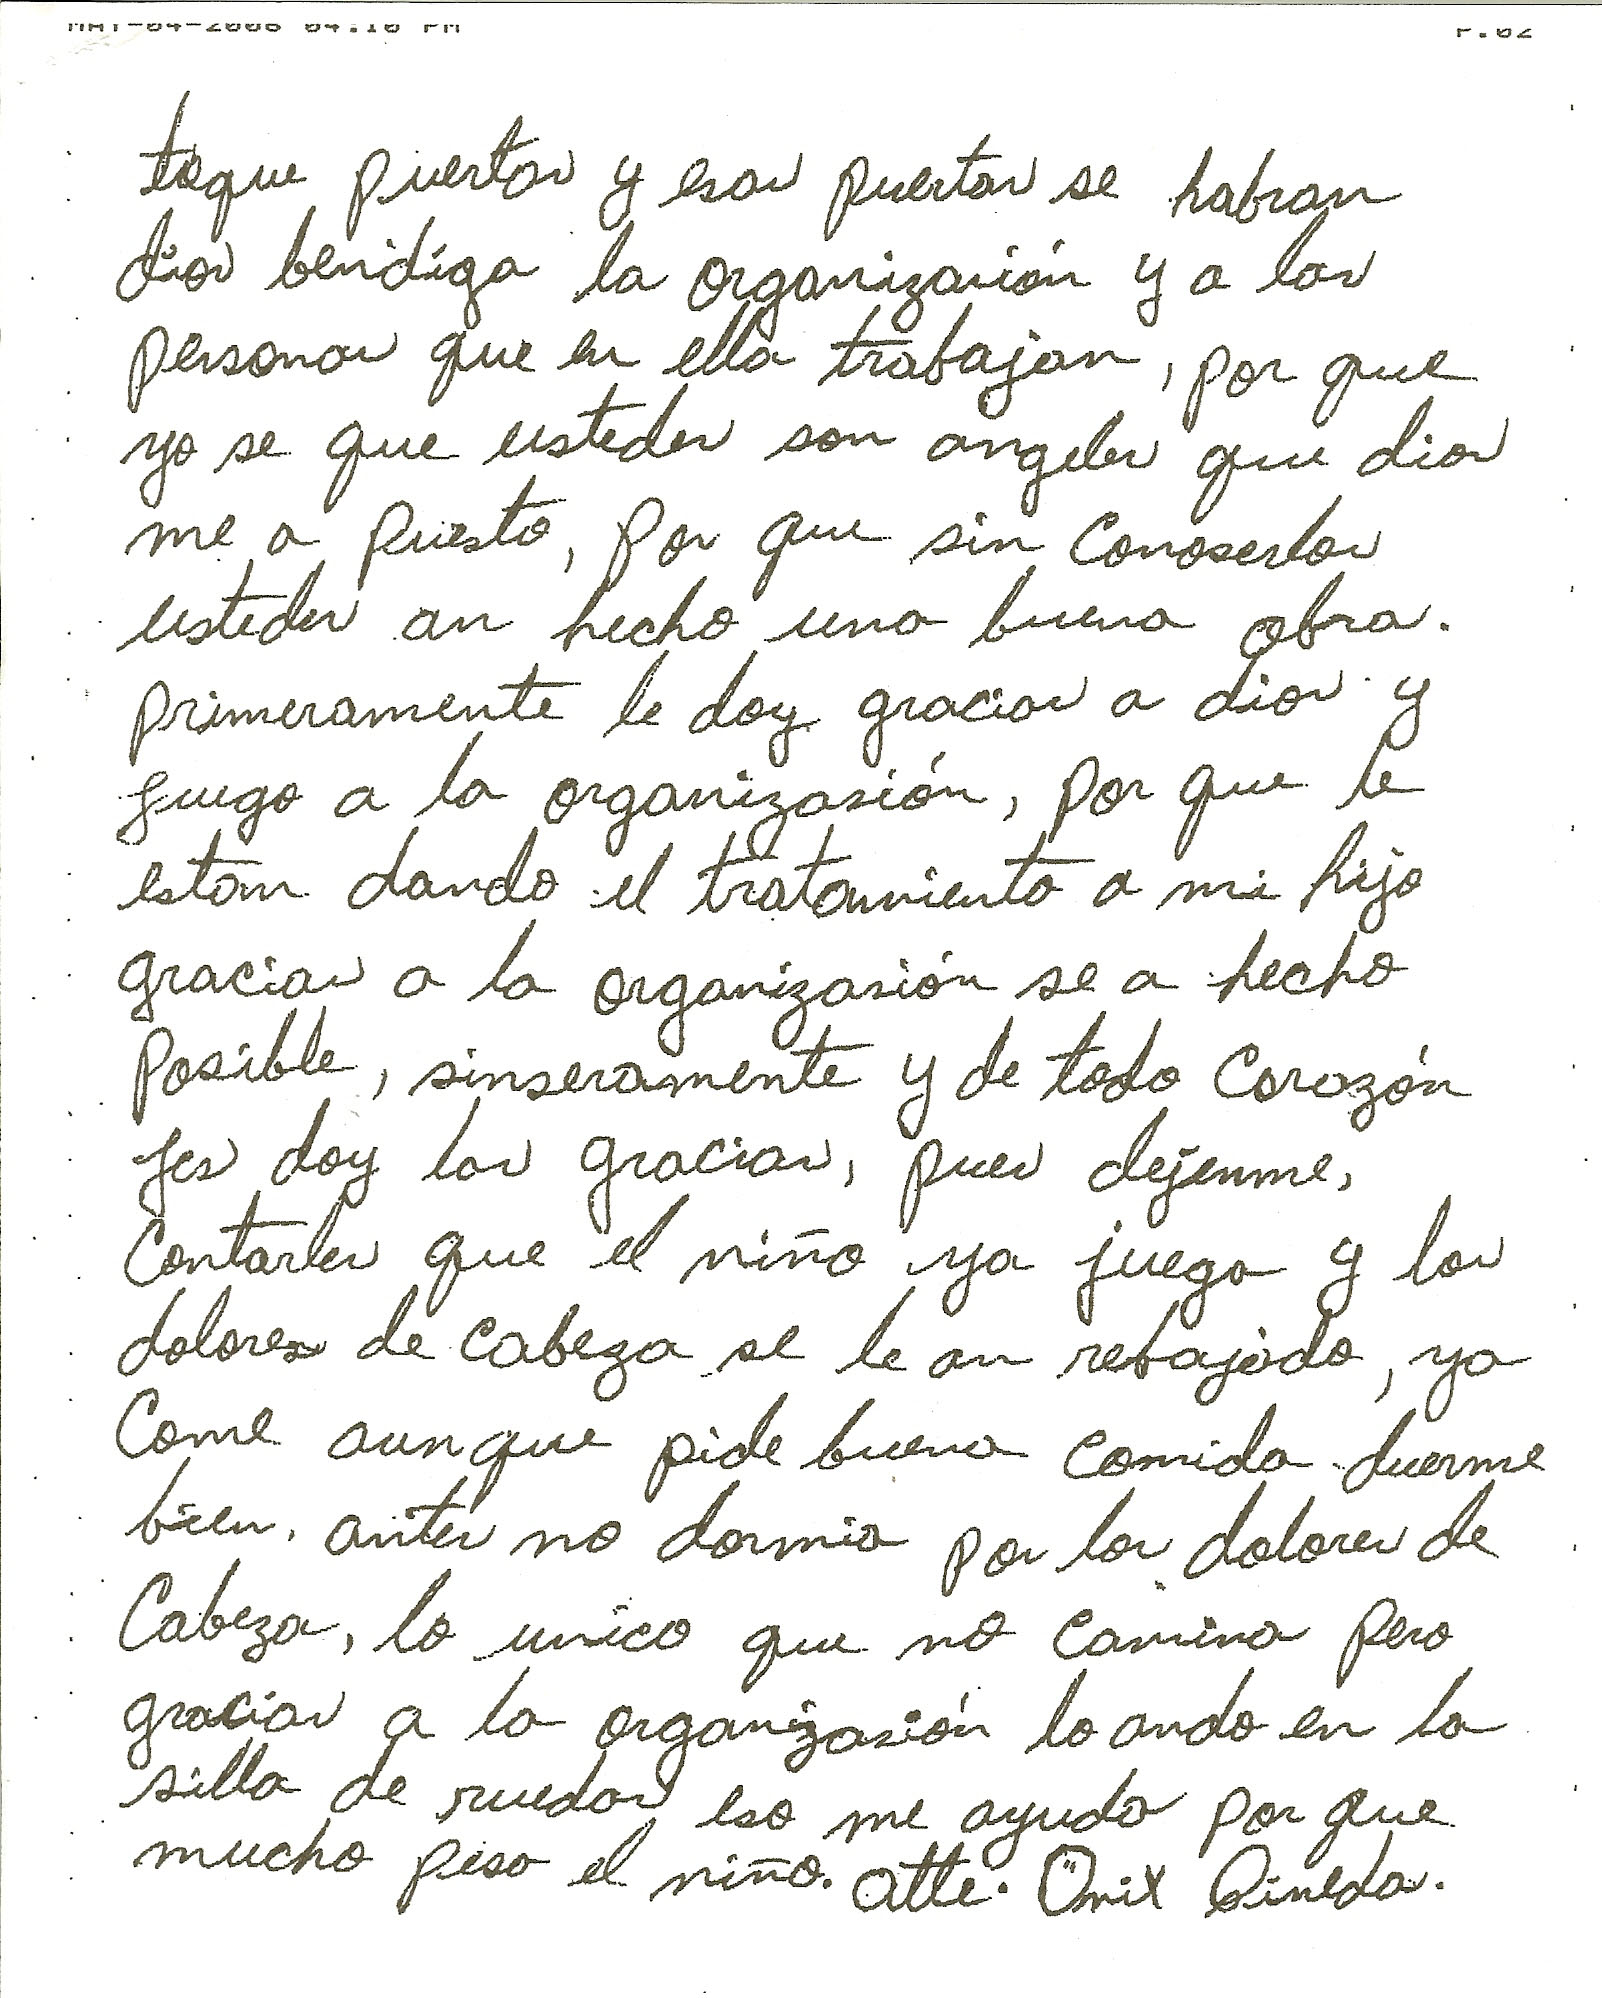 MAY-04-2006 04:16 PM P.02
toque puertas y esas puertas se habran
dios bendiga la organización y a las
personas que en ella trabajan, por que
yo se que ustedes son angeles que dios
me a puesto, por que sin conoserlos
ustedes an hecho una buena obra.
primeramente le doy gracias a dios y
luego a la organizasión, por que le
estan dando el tratamiento a mi hijo
gracias a la organizasión se a hecho
posible, sinseramente y de todo corazón
les doy las gracias, pues dejenme,
contarles que el niño ya juega y los
dolores de cabeza se le an rebajado, ya
come aunque pide buena comida duerme
bien. antes no dormia por los dolores de
cabeza, lo unico que no camina pero
gracias a la organizasión lo ando en la
silla de ruedas eso me ayuda por que
mucho pesa el niño. atte. Onix Pineda.